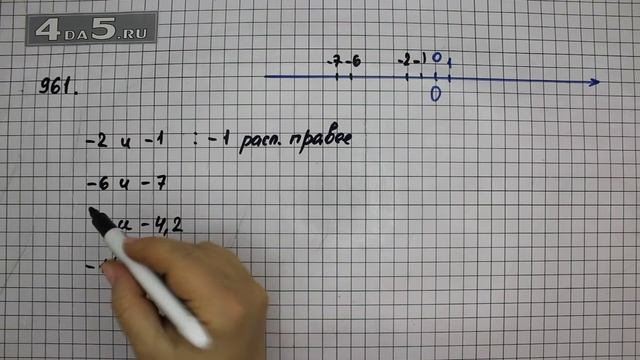 4DA5.RU
961.
-7 -6 -2 -1 0 1
0
-2 и -1 : -1 расп. правее
-6 и -7
и -4,2